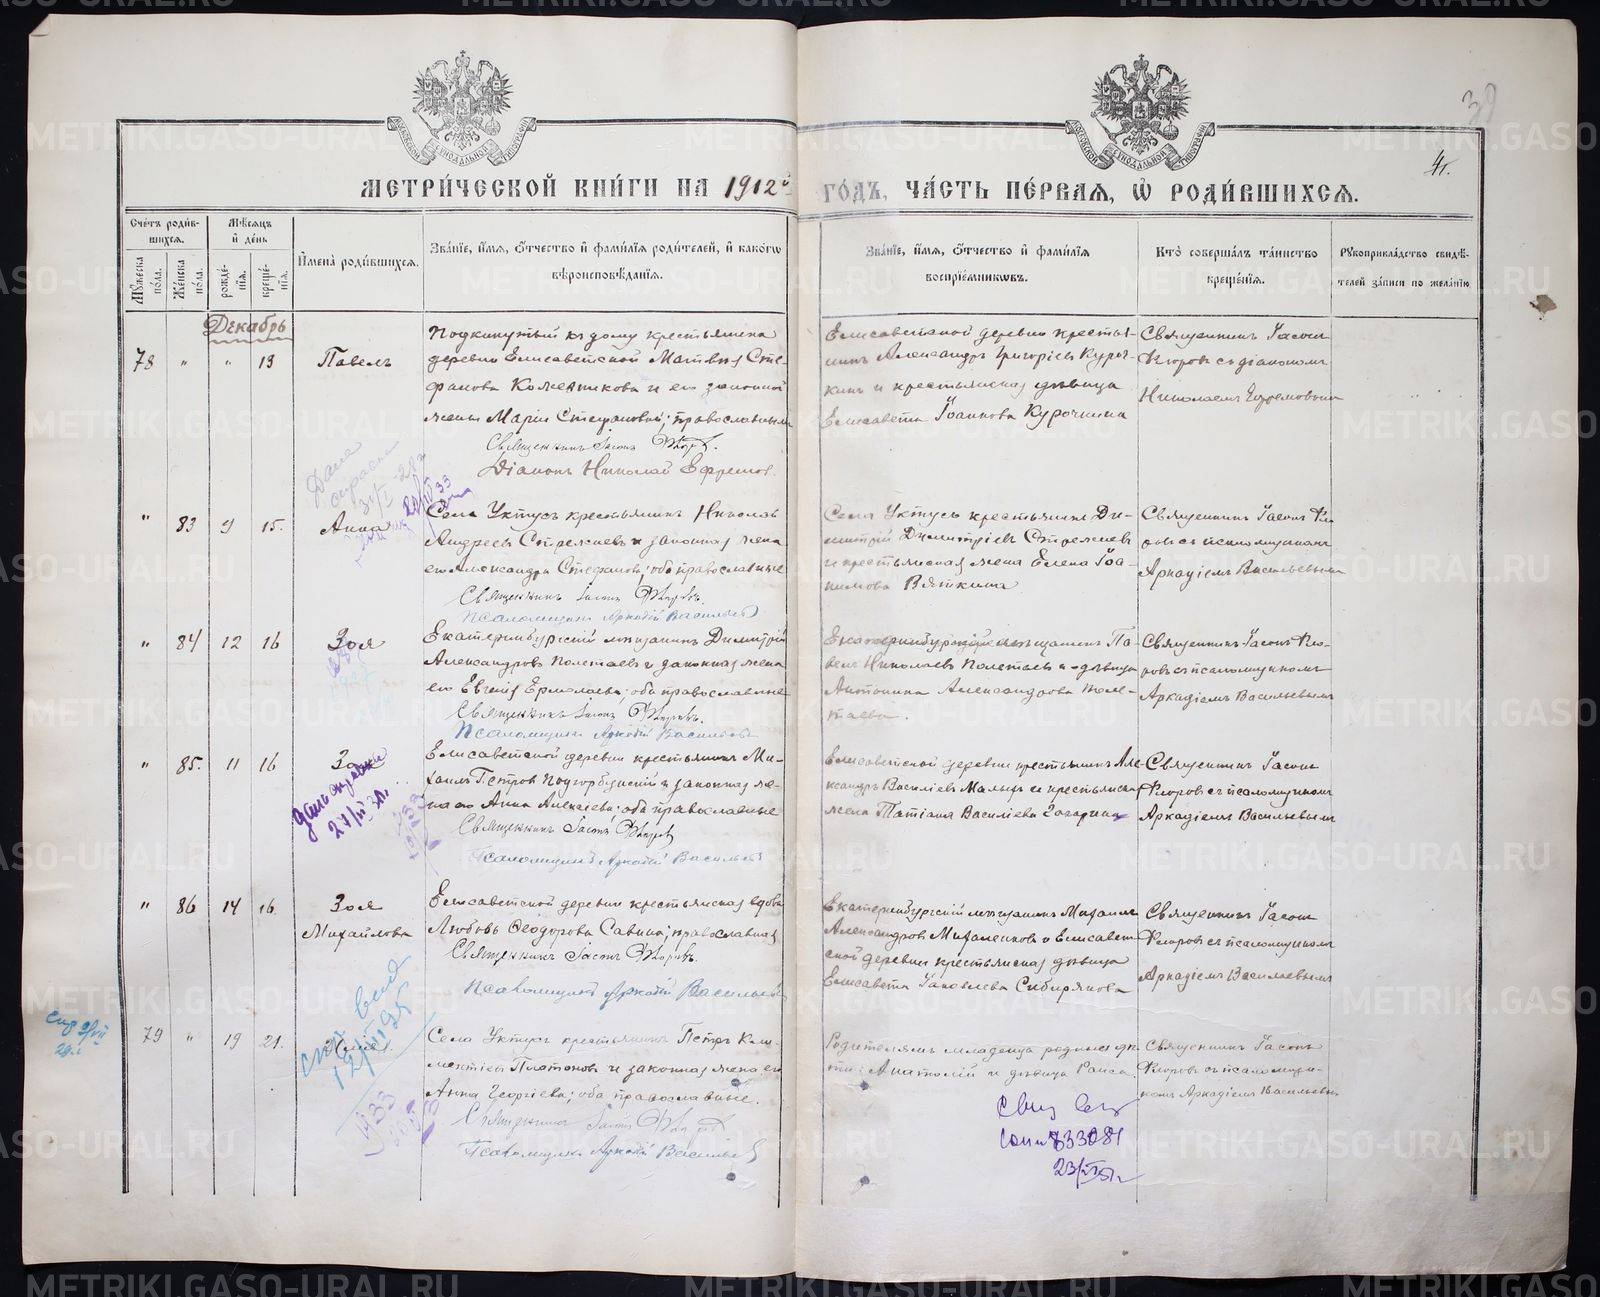 39
4г.
МЕТРИ́ЧЕСКОЙ КНИ́ГИ НА 1912й ГО́ДЪ, ЧА́СТЬ ПЕ́РВАЯ, Ѽ РОДИ́ВШИХСѦ.
Сче́тъ роди́вшихсѧ.
Мꙋ́жеска по́ла.
Же́нска по́ла.
Мѣ́сѧцъ и҆ де́нь
рожде́нїѧ.
креще́нїѧ.
И҆мена̀ роди́вшихсѧ.
Зва́нїе, и҆́мѧ, ѻ҆́тчество и҆ фами́лїѧ роди́телей, и҆ како́гѡ вѣроисповѣ́данїѧ.
Зва́нїе, и҆́мѧ, ѻ҆́тчество и҆ фами́лїѧ воспрїе́мникѡвъ.
Кто̀ соверша́лъ та́инство креще́нїѧ.
Рꙋкоприкла́дство свидѣ́телей за́писи по жела́нїю
Декабрь
78 " " 13 Павелъ
Подкинутый къ дому крестьянина
деревни Елисаветской Матвѣя Сте-
фанова Кожевникова и его законной
жены Маріи Стефановой; православными
Священникъ Іасонъ
Діаконъ Николай Ефремов
Елисаветской деревни крестья-
нинъ Александръ Григоріевъ Куроч-
кинъ и крестьянская дѣвица
Елисавета Іоаннова Курочкина
Священникъ Іасонъ
съ діакономъ
Николаемъ Ефремовымъ
" 83 9 15. Анна
Села Уктусъ крестьянинъ Николай
Андреевъ Стрежневъ и законная жена
его Александра Стефанова; оба православные
Священникъ Іасонъ
Псаломщикъ Аркадій Васильевъ
Села Уктусъ крестьянинъ Ди-
митрій Димитріевъ Стрежневъ
и крестьянская жена Елена Іоа-
кимова Вяткина
Священникъ Іасонъ
ровъ съ псаломщикомъ
Аркадіемъ Васильевымъ
" 84 12 16 Зоя
Екатеринбургскій мѣщанинъ Димитрій
Александровъ Полетаевъ и законная жена
его Евгенія Ермолаева; оба православные
Священникъ Іасонъ
Псаломщикъ Аркадій Васильевъ
Екатеринбургскій мѣщанинъ Па-
велъ Николаевъ Полетаевъ и дѣвица
Антонина Александрова Поле-
таева.
Священникъ Іасонъ
ровъ съ псаломщикомъ
Аркадіемъ Васильевымъ
" 85. 11 16 Зоя
Елисаветской деревни крестьянинъ Ми-
хаилъ Петровъ Подгорбунскій и законная же-
на его Анна Алексіева; оба православные
Священникъ Іасонъ
Псаломщикъ Аркадій Васильевъ
Елисаветской деревни крестьянинъ Але-
ксандръ Василіевъ Малыхъ и крестьянская
жена Татіана Василіева Гагарина
Священникъ Іасонъ
съ псаломщикомъ
Аркадіемъ Васильевымъ
27/II 30г.
" 86 14 16. Зоя
Михайлова
Елисаветской деревни крестьянская вдова
Любовь Ѳеодорова Савина; православная
Священникъ Іасонъ
Псаломщикъ Аркадій Васильевъ
Екатеринбургскій мѣщанинъ Михаилъ
Александровъ Михаленковъ и Елисавет-
ской деревни крестьянская дѣвица
Елисавета Іаковлева Сибирякова
Священникъ Іасонъ
съ псаломщикомъ
Аркадіемъ Васильевымъ
79 " 19 21.
Села Уктусъ крестьянинъ Петръ Кли-
ментіевъ Платоновъ и законная жена его
Анна Георгіева; оба православные.
Священникъ Іасонъ
Псаломщикъ Аркадій Васильевъ
Родителямъ младенца родные дѣ-
ти: Анатолій и дѣвица Раиса.
Священникъ Іасонъ
съ псаломщи-
комъ Аркадіемъ Васильевымъ
METRIKI.GASO-URAL.RU